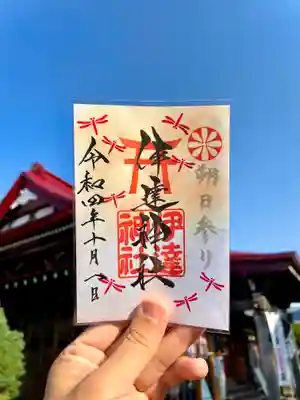 朔日参り
伊達神社
伊達
神社
令和四年十月一日